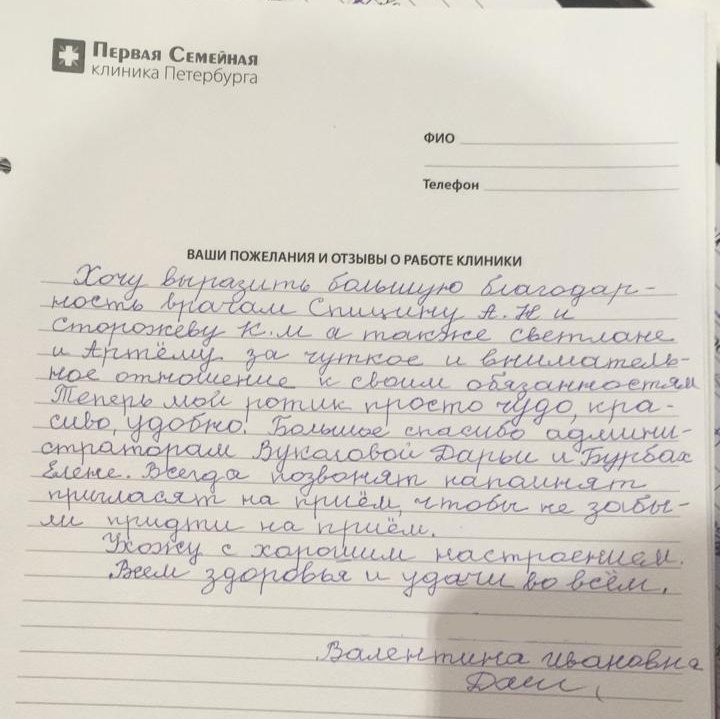 Первая Семейная
клиника Петербурга
ФИО
Телефон
ВАШИ ПОЖЕЛАНИЯ И ОТЗЫВЫ О РАБОТЕ КЛИНИКИ
Хочу выразить большую благодар-
ность врачам Спицину А. Н и
Сторожеву К.м а также светлане
и Артёму за чуткое и вниматель-
ное отношение к своим обязанностям
Теперь мой ротик просто чудо, кра-
сиво, удобно. Большое спасибо админи-
страторам Вукаловой Дарьи и Бурбах
Елене. Всегда позвонят напомнят
пригласят на приём, чтобы не забы-
ли придти на приём.
Ухожу с хорошим настроением.
Всем здоровья и удачи во всём.
Валентина ивановна